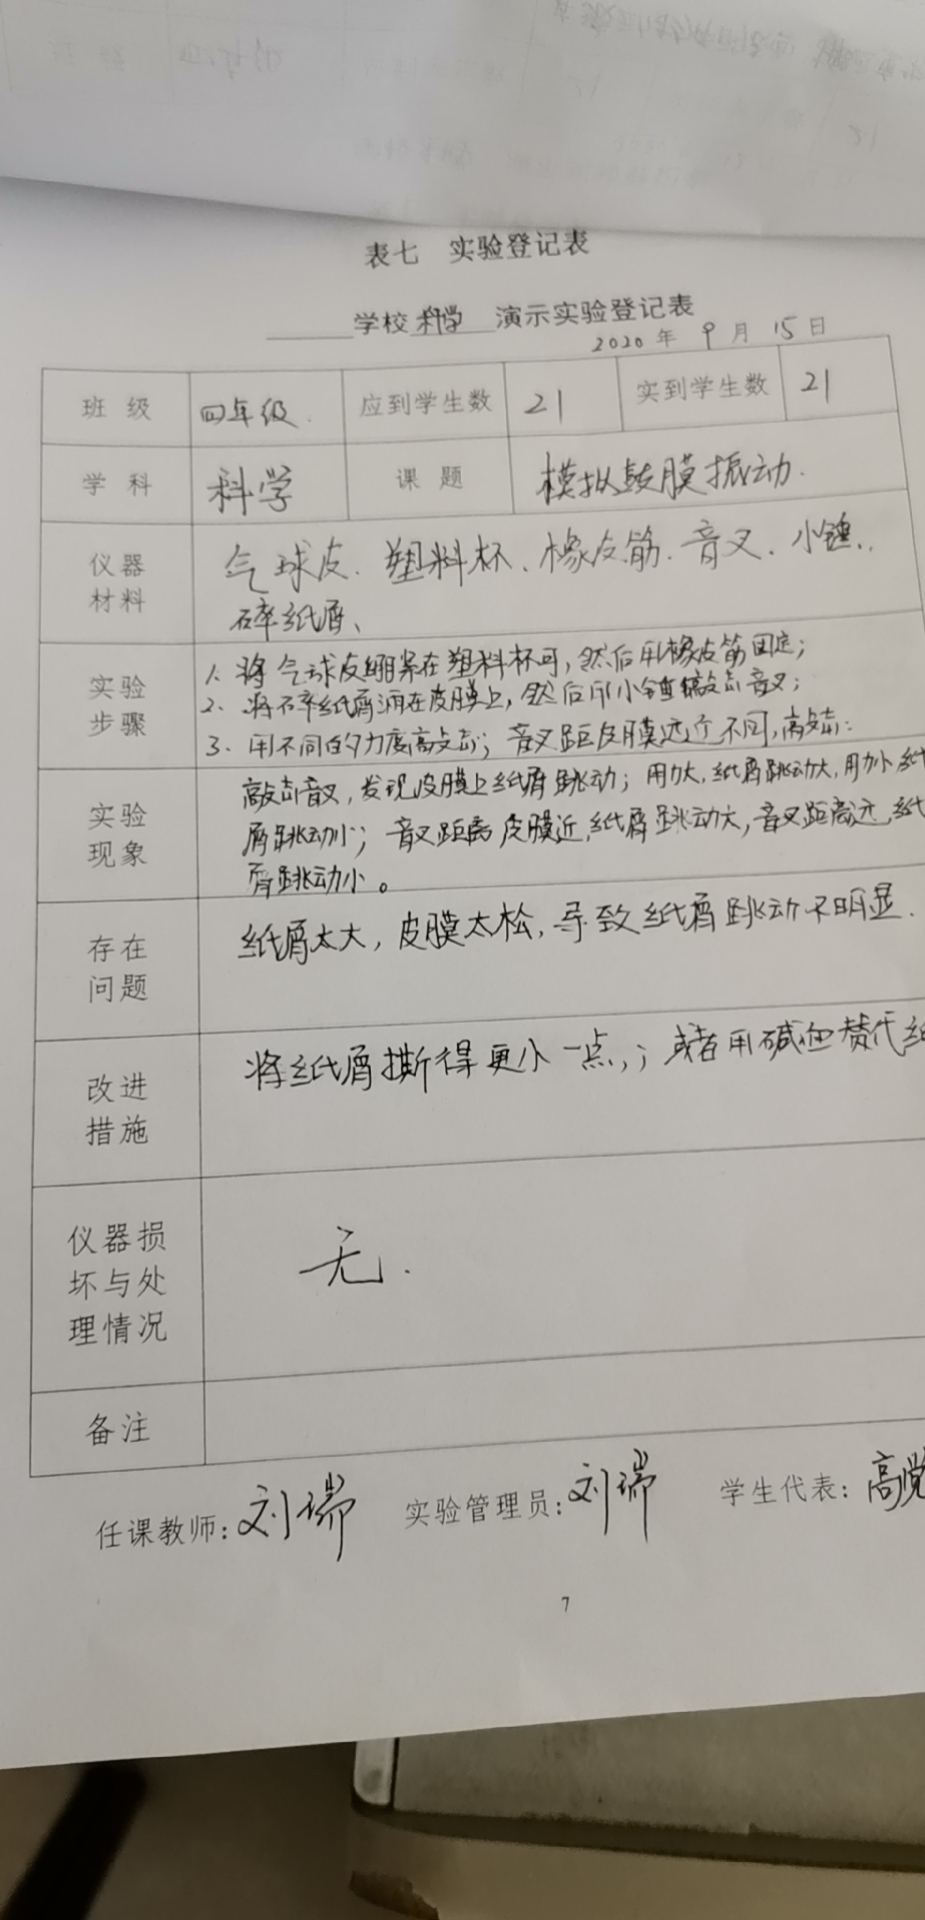 表七 实验登记表
学校 科学 演示实验登记表
2020 年 9 月 15 日
班级 四年级. 应到学生数 21 实到学生数 21
学科 科学 课题 模拟鼓膜振动.
仪器材料 气球皮、塑料杯、橡皮筋、音叉、小锤、
碎纸屑、
实验步骤 1、将气球皮绷紧在塑料杯口,然后用橡皮筋固定;
2、将碎纸屑洒在皮膜上,然后用小锤敲击音叉;
3、用不同的力度敲击;音叉距皮膜远近不同,敲击.
实验现象 敲击音叉,发现皮膜上纸屑跳动;用力大,纸屑跳动大,用力小纸
屑跳动小;音叉距离皮膜近,纸屑跳动大,音叉距离远,纸
屑跳动小。
存在问题 纸屑太大,皮膜太松,导致纸屑跳动不明显.
改进措施 将纸屑撕得更小一点,;或者用碱面替代纸
仪器损坏与处理情况 无.
备注
任课教师:刘瑞 实验管理员:刘瑞 学生代表:高
7